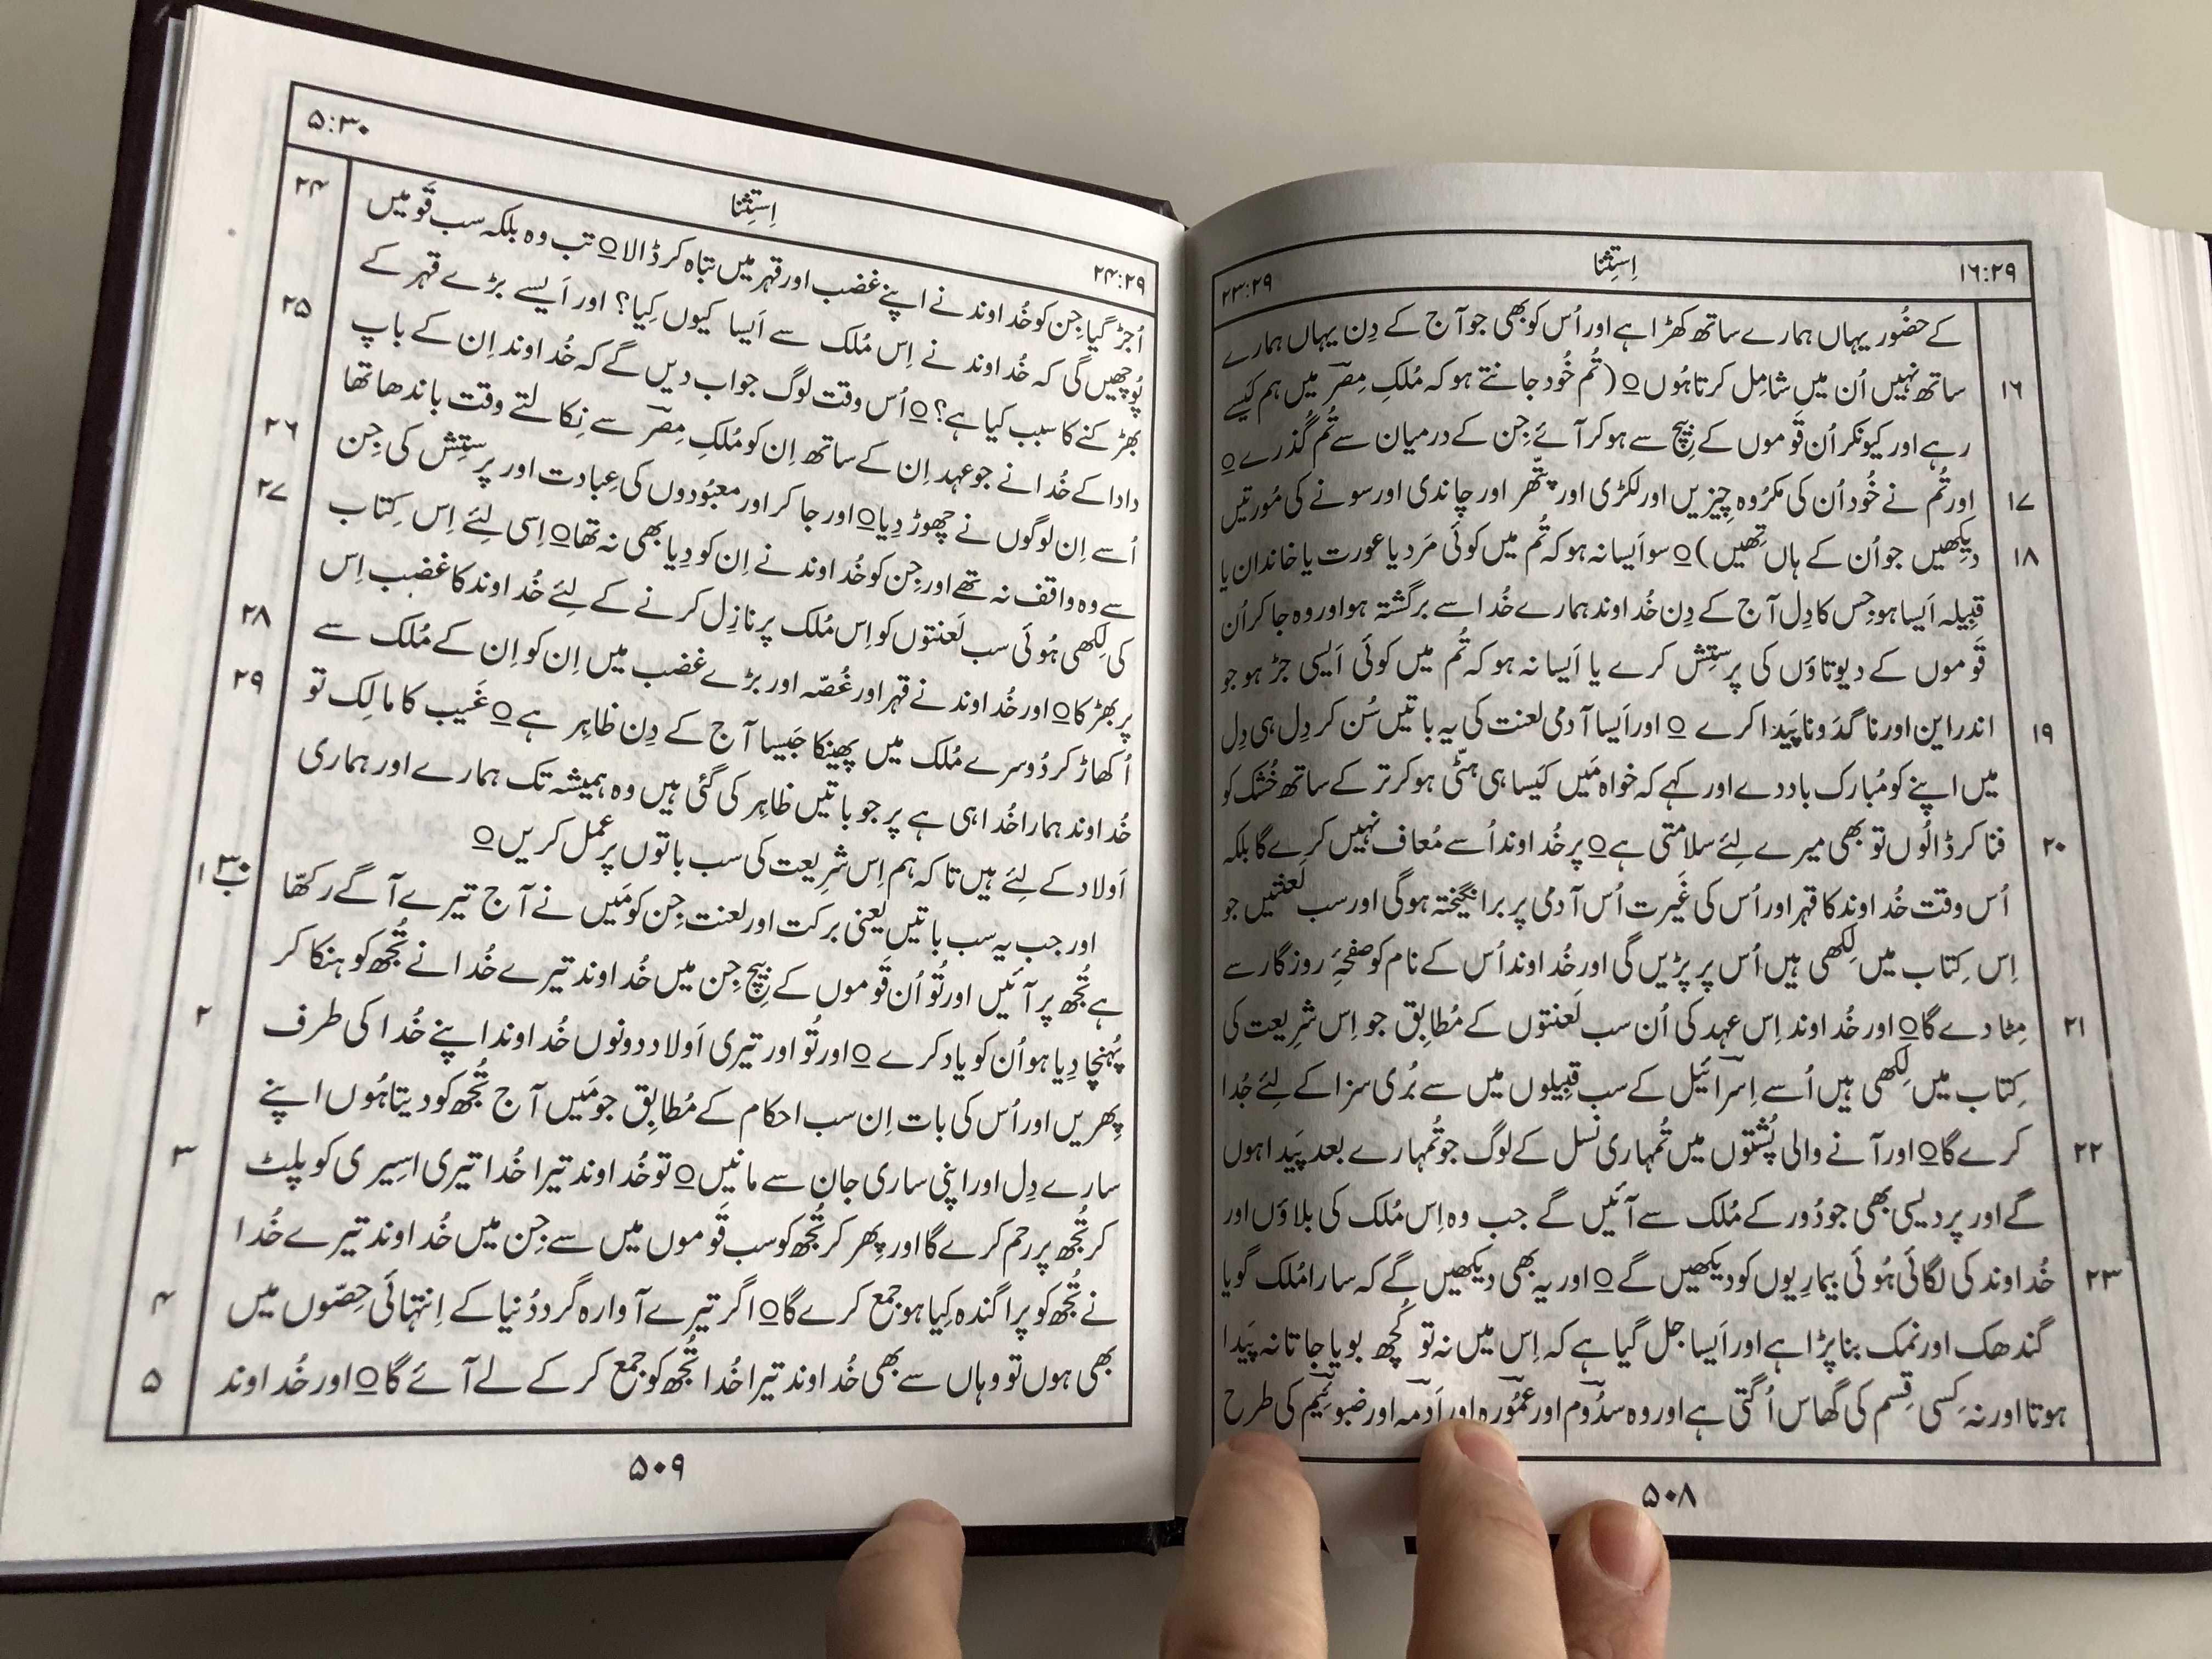 ۱۶:۲۹
اِستِثنا
۲۳:۲۹
کے حضُور یہاں ہمارے ساتھ کھڑا ہے اور اُس کو بھی جو آج کے دِن یہاں ہمارے
۱۶
ساتھ نہیں اُن میں شامِل کرتا ہُوں O (تُم خُود جانتے ہو کہ مُلکِ مِصؔر میں ہم کَیسے
رہے اور کیونکر اُن قَوموں کے بِیچ سے ہو کر آئے جِن کے درمیان سے تُم گُذرے O
۱۷
اور تُم نے خُود اُن کی مکرُوہ چِیزیں اور لکڑی اور پتّھر اور چاندی اور سونے کی مُورتیں
۱۸
دیکِھیں جو اُن کے ہاں تِھیں) O سو اَیسا نہ ہو کہ تُم میں کوئی مَرد یا عورت یا خاندان یا
قبِیلہ اَیسا ہو جِس کا دِل آج کے دِن خُداوند ہمارے خُدا سے برگشتہ ہو اور وہ جا کر اُن
قَوموں کے دیوتاؤں کی پرستِش کرے یا اَیسا نہ ہو کہ تُم میں کوئی اَیسی جڑ ہو جو
۱۹
اندراین اور ناگدَونا پَیدا کرے O اور اَیسا آدمی لعنت کی یہ باتیں سُن کر دِل ہی دِل
میں اپنے کو مُبارک باد دے اور کہے کہ خواہ مَیں کَیسا ہی ہٹّی ہو کر تر کے ساتھ خُشک کو
۲۰
فنا کر ڈالُوں تَو بھی میرے لِئے سلامتی ہے O پر خُداوند اُسے مُعاف نہیں کرے گا بلکہ
اُس وقت خُداوند کا قہر اور اُس کی غَیرت اُس آدمی پر برانگیختہ ہو گی اور سب لَعنتیں جو
اِس کِتاب میں لِکھی ہیں اُس پر پڑیں گی اور خُداوند اُس کے نام کو صفحۂِ روزگار سے
۲۱
مِٹا دے گا O اور خُداوند اِس عہد کی اُن سب لَعنتوں کے مُطابِق جو اِس شرِیعت کی
کِتاب میں لِکھی ہیں اُسے اِسرائؔیل کے سب قبِیلوں میں سے بُری سزا کے لِئے جُدا
۲۲
کرے گا O اور آنے والی پُشتوں میں تُمہاری نسل کے لوگ جو تُمہارے بعد پَیدا ہوں
گے اور پردیسی بھی جو دُور کے مُلک سے آئیں گے جب وہ اِس مُلک کی بلاؤں اور
۲۳
خُداوند کی لگائی ہُوئی بیمارِیوں کو دیکھیں گے O اور یہ بھی دیکھیں گے کہ سارا مُلک گویا
گندھک اور نمک بنا پڑا ہے اور اَیسا جل گیا ہے کہ اِس میں نہ تو کُچھ بویا جاتا نہ پَیدا
ہوتا اور نہ کِسی قِسم کی گھاس اُگتی ہے اور وہ سدُوؔم اور عمُورؔہ اور اَدمؔہ اور ضبوئِیؔم کی طرح
۵۰۸
۲۴:۲۹
اِستِثنا
۵:۳۰
۲۴
اُجڑ گیا جِن کو خُداوند نے اپنے غضب اور قہر میں تباہ کر ڈالا O تب وہ بلکہ سب قَومیں
پُوچھیں گی کہ خُداوند نے اِس مُلک سے اَیسا کیوں کِیا؟ اور اَیسے بڑے قہر کے
۲۵
بھڑکنے کا سبب کیا ہے؟ O اُس وقت لوگ جواب دیں گے کہ خُداوند اِن کے باپ
دادا کے خُدا نے جو عہد اِن کے ساتھ اِن کو مُلکِ مِصؔر سے نِکالتے وقت باندھا تھا
۲۶
اُسے اِن لوگوں نے چھوڑ دِیا O اور جا کر اور معبُودوں کی عِبادت اور پرستِش کی جِن
۲۷
سے وہ واقف نہ تھے اور جِن کو خُداوند نے اِن کو دِیا بھی نہ تھا O اِسی لِئے اِس کِتاب
کی لِکھی ہُوئی سب لَعنتوں کو اِس مُلک پر نازِل کرنے کے لِئے خُداوند کا غضب اِس
۲۸
پر بھڑکا O اور خُداوند نے قہر اور غُصّہ اور بڑے غضب میں اِن کو اِن کے مُلک سے
۲۹
اُکھاڑ کر دُوسرے مُلک میں پھینکا جَیسا آج کے دِن ظاہِر ہے O غَیب کا مالِک تو
خُداوند ہمارا خُدا ہی ہے پر جو باتیں ظاہِر کی گئی ہیں وہ ہمیشہ تک ہمارے اور ہماری
اَولاد کے لِئے ہیں تاکہ ہم اِس شرِیعت کی سب باتوں پر عمل کریں O
۳۰ باب ۱
اور جب یہ سب باتیں یعنی برکت اور لعنت جِن کو مَیں نے آج تیرے آگے رکھّا
ہے تُجھ پر آئیں اور تُو اُن قَوموں کے بِیچ جِن میں خُداوند تیرے خُدا نے تُجھ کو ہنکا کر
۲
پُہنچا دِیا ہو اُن کو یاد کرے O اور تُو اور تیری اَولاد دونوں خُداوند اپنے خُدا کی طرف
پِھریں اور اُس کی بات اِن سب احکام کے مُطابِق جو مَیں آج تُجھ کو دیتا ہُوں اپنے
۳
سارے دِل اور اپنی ساری جان سے مانیں O تو خُداوند تیرا خُدا تیری اسِیری کو پلٹ
کر تُجھ پر رحم کرے گا اور پِھر کر تُجھ کو سب قَوموں میں سے جِن میں خُداوند تیرے خُدا
۴
نے تُجھ کو پراگندہ کِیا ہو جمع کرے گا O اگر تیرے آوارہ گرد دُنیا کے اِنتہائی حِصّوں میں
۵
بھی ہوں تو وہاں سے بھی خُداوند تیرا خُدا تُجھ کو جمع کر کے لے آئے گا O اور خُداوند
۵۰۹